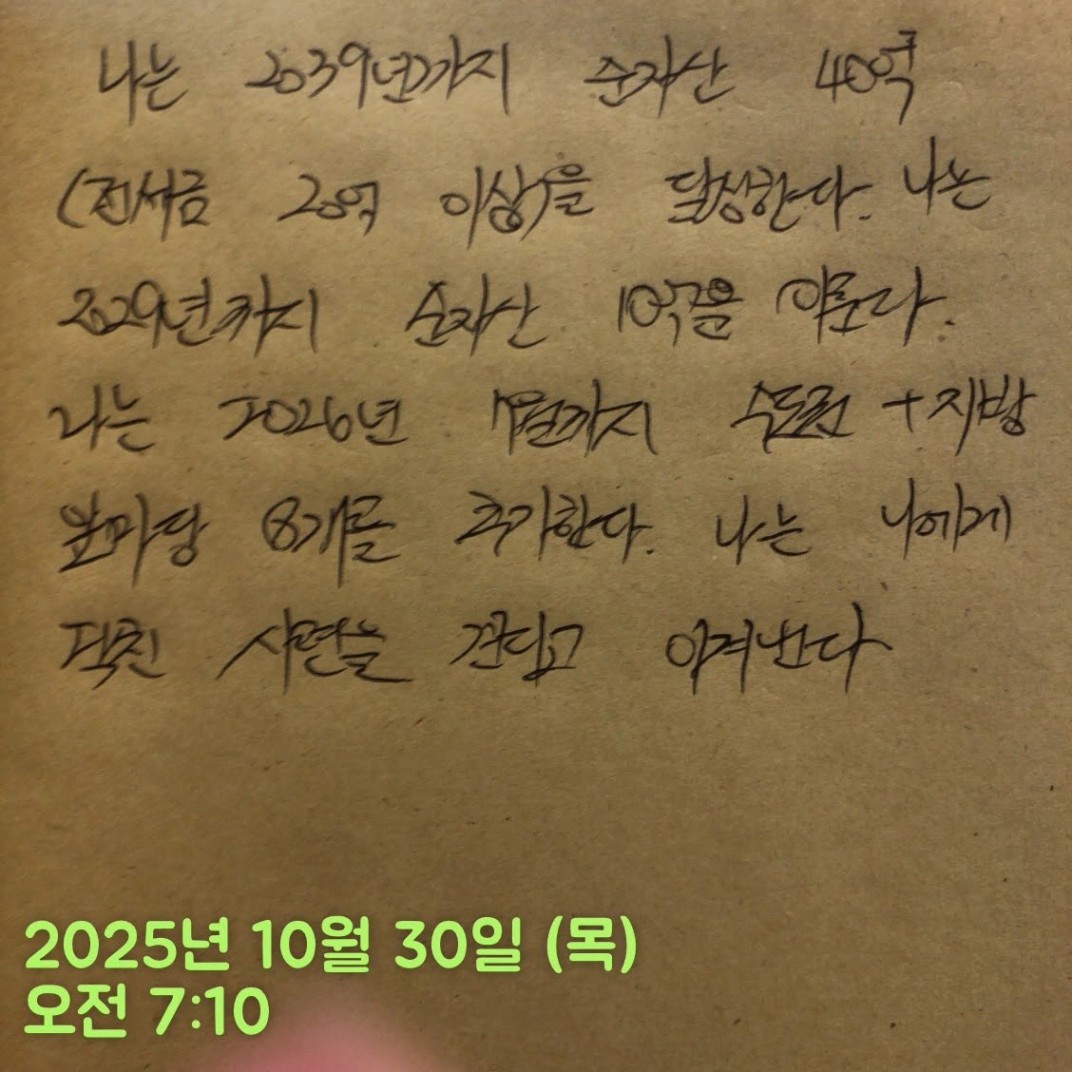 나는 2039년까지 순자산 40억
(전세금 20억 이상)을 달성한다. 나는
2029년까지 순자산 10억을 이룬다.
나는 2026년 까지 수도권 + 지방
앞마당 8개를 추가한다. 나는 나에게
닥친 시련을 견디고 이겨낸다
2025년 10월 30일 (목)
오전 7:10